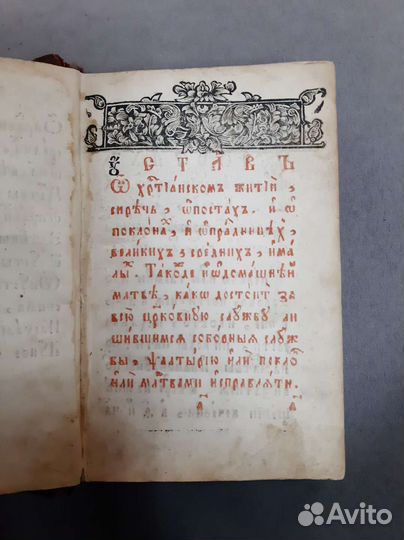 Ꙋ҆СТА́ВЪ
Ѡ҆ хр҇тїа́нскомъ житїи̑,
сирѣ́чь, ѡ҆постах̾. и҆ ѡ҆
поклона̑х̾, и҆ ѡ҆пра́здницѣх̾,
вели́кихъ, сре́днихъ, и҆ ма́
лых̾. Та́коже и҆ ѡ҆дома́шнеи
мл҃твѣ, ка́кѡ досто́итъ за
всю̀ цр҃ко́вную слу́жбу ли
ши́вшимсѧ собо́рныѧ слу́ж
бы, ѱалты́рїю и҆лѝ покло̑
и҆лѝ мл҃твами и҆справлѧ́ти.
а҃ а҃
Avito